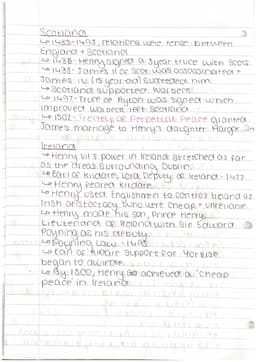 Scotland
3
↳ 1485-1495, relations were tense between
England + Scotland
↳ 1486- Henry signed a 3 year truce with Scots.
↳ 1488- James III of Scot. was assassinated +
James IV (15 year old) succeeded him
↳ Scotland supported Warbeck
↳ 1497- Truce of Ayton was signed which
improved Warbeck left Scotland
↳ 1502- Treaty of Perpetual Peace granted
James marriage to Henry's daughter
Ireland
↳ Henry VII's power in Ireland stretched as far
as the areas surrounding Dublin
↳ Earl of Kildare, Lord Deputy of Ireland - 1477
↳ Henry feared Kildare
↳ Henry used Englishmen to control Ireland as
Irish aristocracy who were cheap + unreliable
↳ Henry made his son, Prince Henry,
Lieutenant of Ireland with Sir Edward
Poyning as his deputy.
↳ Poyning Law - 1495
↳ Earl of Kildare support for Yorkist
began to dwindle
↳ By 1500, Henry achieved a 'cheap
peace in Ireland